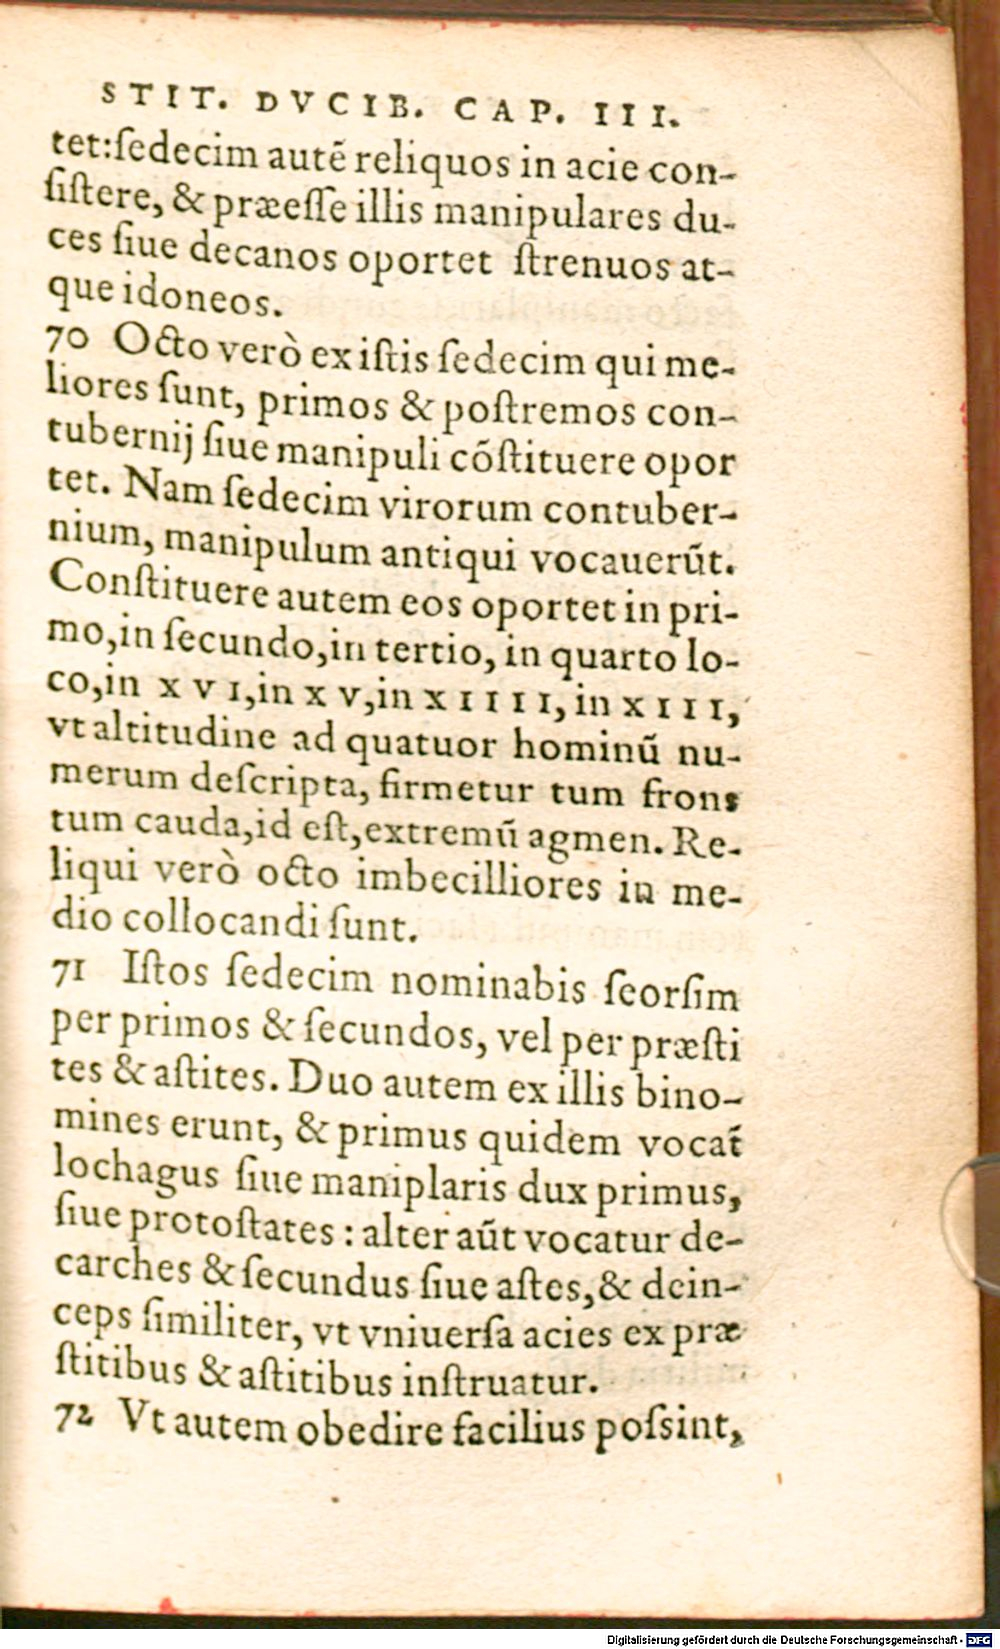 STIT. DVCIB. CAP. III.
tet:ſedecim autẽ reliquos in acie con-
ſiſtere, & præeſſe illis manipulares du-
ces ſiue decanos oportet ſtrenuos at-
que idoneos.
70 Octo verò ex iſtis ſedecim qui me-
liores ſunt, primos & poſtremos con-
tubernij ſiue manipuli cõſtituere opor
tet. Nam ſedecim virorum contuber-
nium, manipulum antiqui vocauerũt.
Conſtituere autem eos oportet in pri-
mo,in ſecundo,in tertio, in quarto lo-
co,in XVI,in XV,in XIIII, in XIII,
vt altitudine ad quatuor hominũ nu-
merum deſcripta, firmetur tum frons
tum cauda,id eſt,extremũ agmen. Re-
liqui verò octo imbecilliores in me-
dio collocandi ſunt.
71 Iſtos ſedecim nominabis ſeorſim
per primos & ſecundos, vel per præſti
tes & aſtites. Duo autem ex illis bino-
mines erunt, & primus quidem vocat̃
lochagus ſiue maniplaris dux primus,
ſiue protoſtates : alter aũt vocatur de-
carches & ſecundus ſiue aſtes,& dein-
ceps ſimiliter, vt vniuerſa acies ex præ
ſtitibus & aſtitibus inſtruatur.
72 Vt autem obedire facilius poſsint,
Digitalisierung gefördert durch die Deutsche Forschungsgemeinschaft - DFG